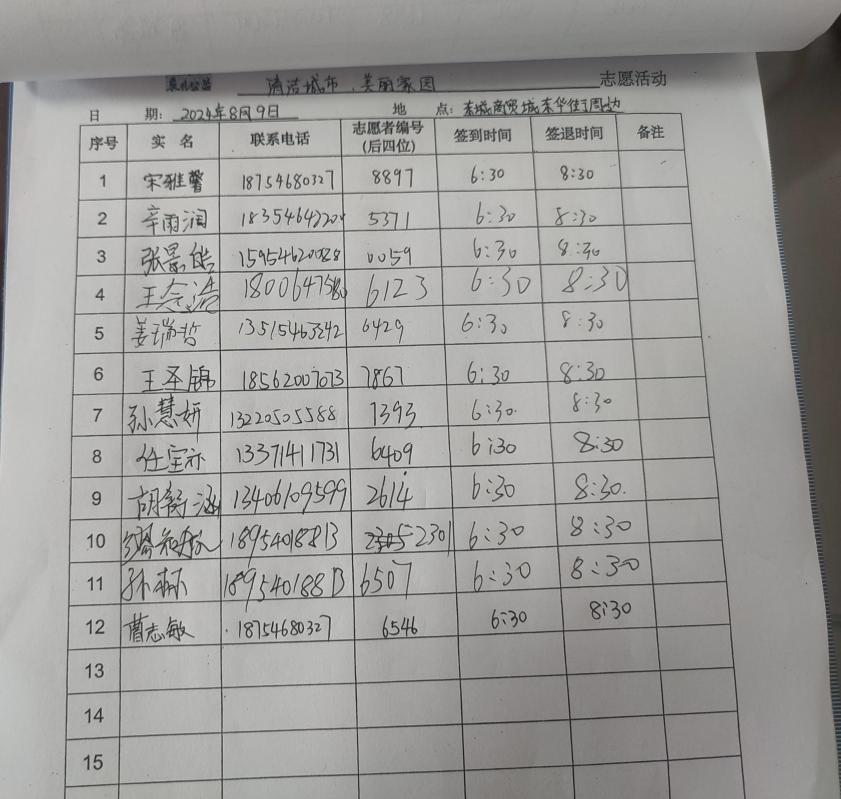 清洁城市、美丽家园 志愿活动
日 期: 2024年8月9日 地 点: 东城商贸城东华街周边
序号 实 名 联系电话 志愿者编号(后四位) 签到时间 签退时间 备注
1 宋雅馨 18754680327 8897 6:30 8:30
2 辛雨润 5371 6:30 8:30
3 张景皓 15954620028 0059 6:30 8:30
4 王念浩 6123 6:30 8:30
5 姜瑞哲 13515463242 6429 6:30 8:30
6 王圣锦 18562007073 7867 6:30 8:30
7 孙慧妍 13220505588 1393 6:30 8:30
8 任宝亦 13371411731 6409 6:30 8:30
9 胡舒涵 13406109599 2614 6:30 8:30
10 18954018813 2301 6:30 8:30
11 孙赫 18954018813 6507 6:30 8:30
12 曹志敏 18754680327 6546 6:30 8:30
13
14
15